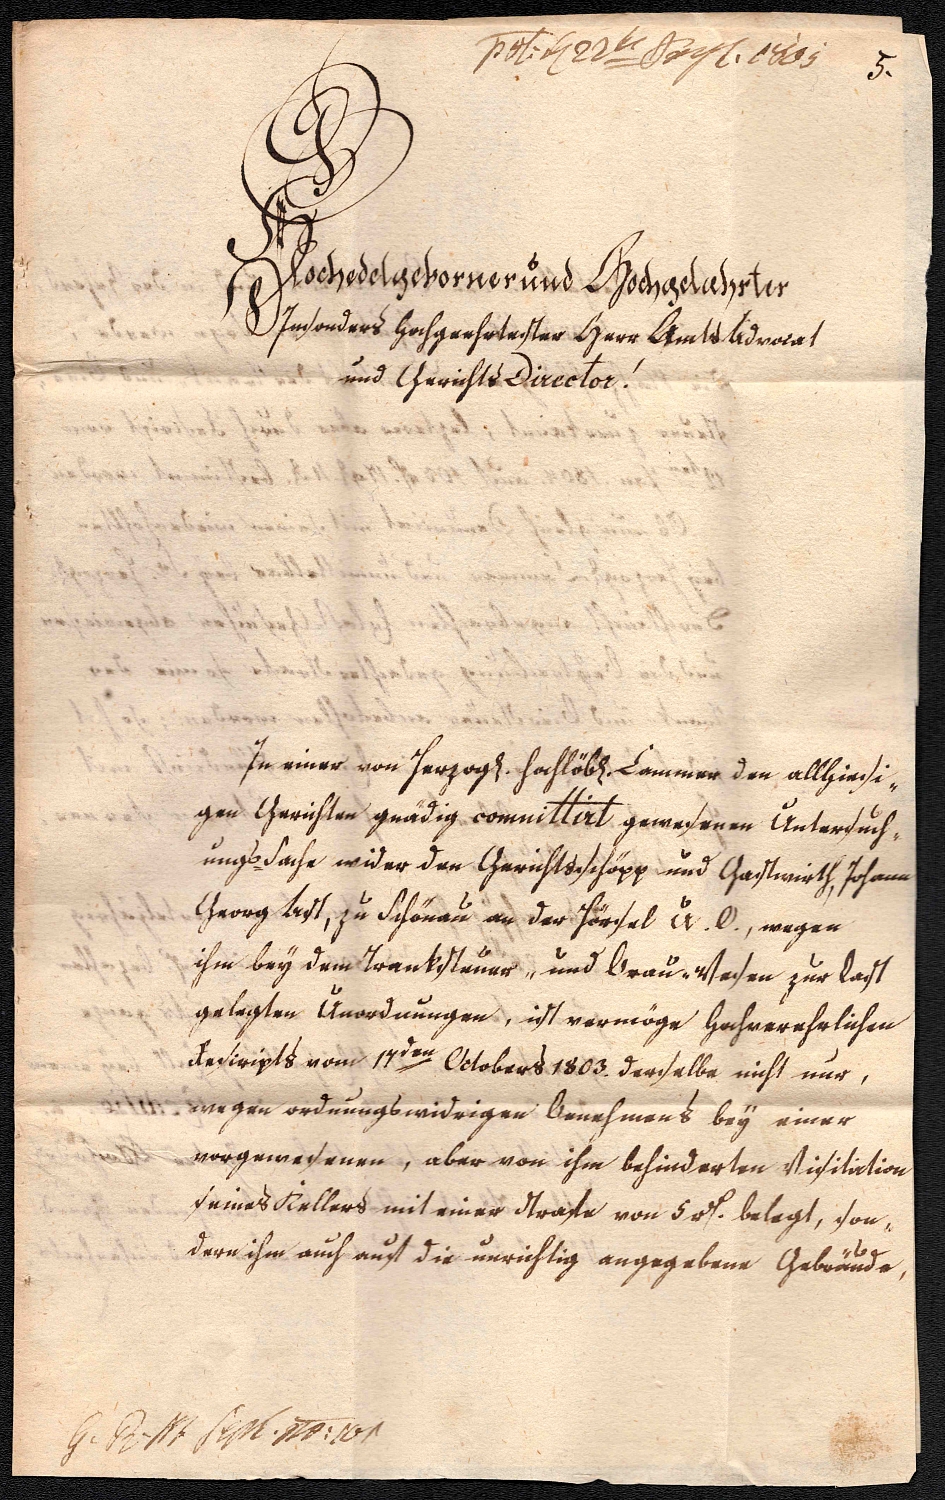 d 22te Sept. 1805
5.
Hochedelgeborner und Hochgelahrter
Insonders Hochgeehrtester Herr Amts Advocat
und Gerichts Director!
In einer von Herzogl. Hochlöbl. Cammer den allhiesi-
gen Gerichten gnädig committirt gewesenen Untersuch-
ungs Sache wider den Gerichtsschöpp und Gastwirth, Johann
Georg Ast, zu Schönau an der Hörsel U. A., wegen
ihm bey dem Tranksteuer- und Brau-Wesen zur Last
gelegten Unordnungen, ist vermöge Hochverehrlichen
Rescripts vom 17den Octobers 1803. derselbe nicht nur,
wegen ordnungswidrigen Benehmens bey einer
vorgewesenen, aber von ihm behinderten Visitation
seines Kellers mit einer Strafe von 5 rl. belegt, son-
dern ihm auch auf die unrichtig angegebene Gebräude,
Sept.